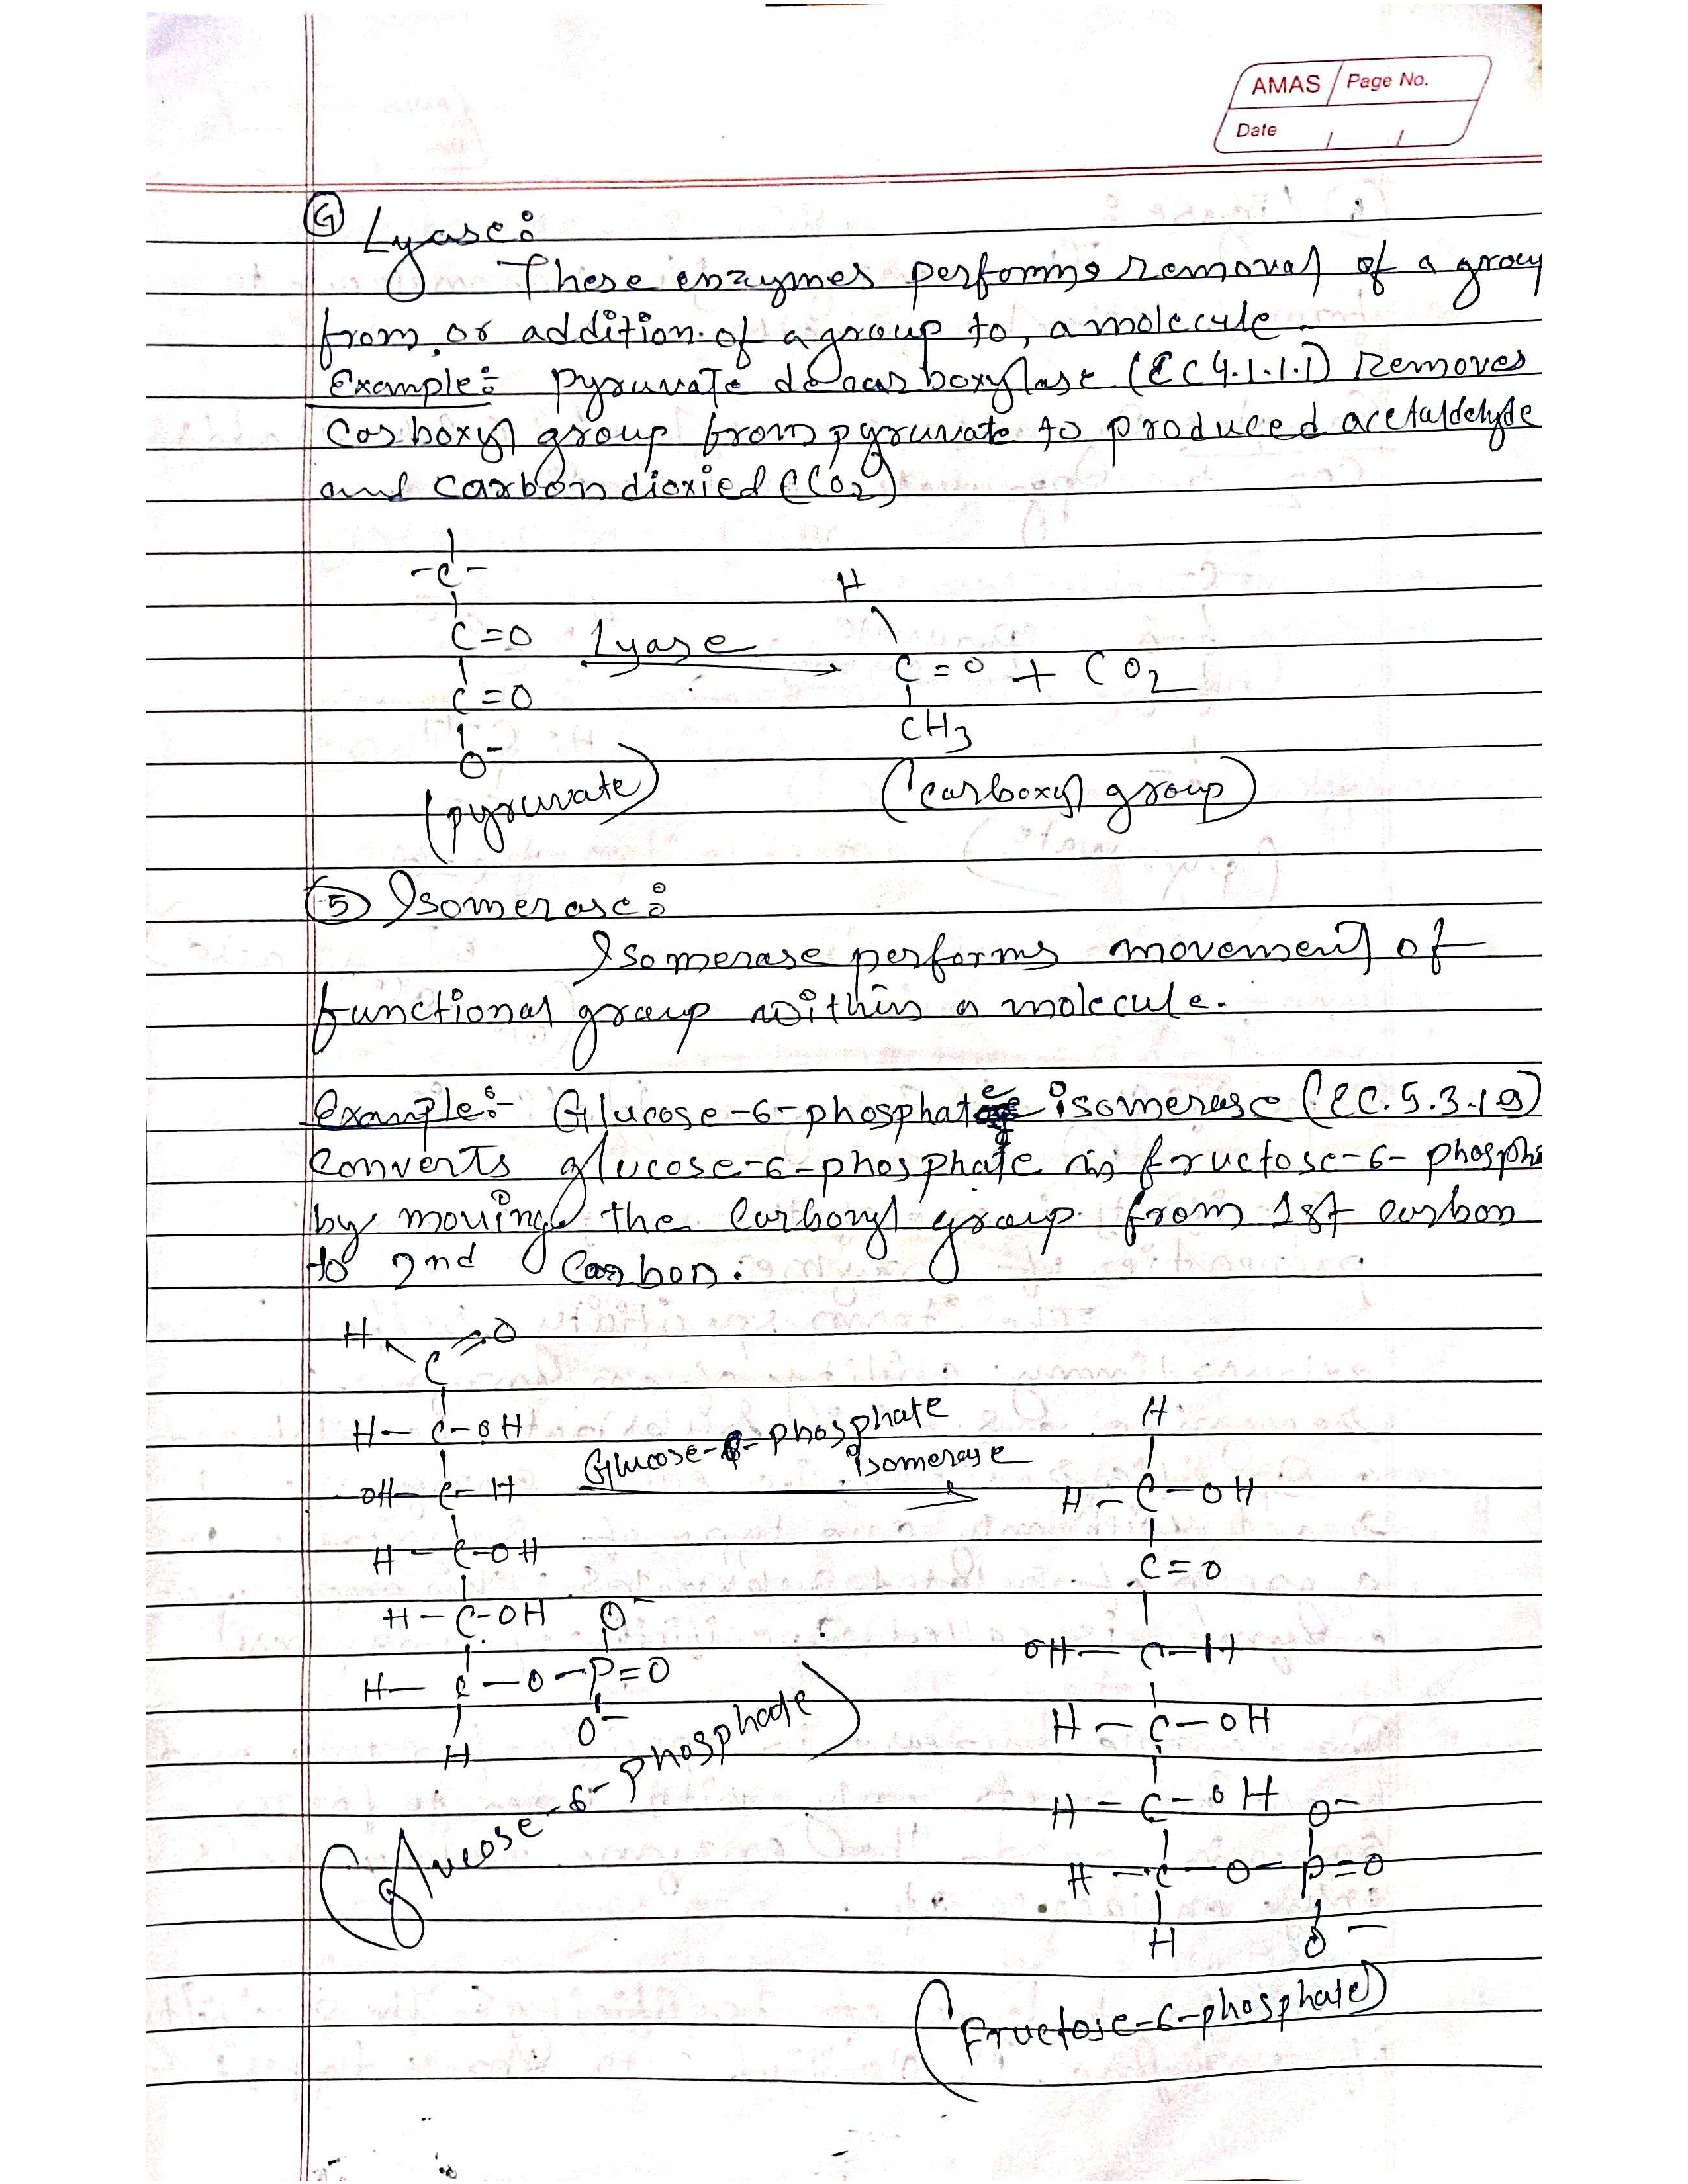 AMAS Page No.
Date / /
④ Lyase:
These enzymes performs removal of a group
from, or addition of a group to, a molecule.
Example: pyruvate decarboxylase (EC 4.1.1.1) Removes
Carboxyl group from pyruvate to produced acetaldehyde
and carbon dioxied (CO2)
-C-
C=O Lyase
C=O
O-
(pyruvate)
H
C=O + CO2
CH3
(carboxyl group)
⑤ Isomerase:
Isomerase performs movement of
functional group within a molecule.
Example:- Glucose-6-phosphate isomerase (EC.5.3.1.9)
Converts glucose-6-phosphate in fructose-6-phosph
by moving the Carboxyl group from 1st carbon
to 2nd Carbon.
H O
C
H-C-OH
OH-C-H
H-C-OH
H-C-OH O-
H-C-O-P=O
H O-
(glucose-6-phosphate)
Glucose-6-phosphate
isomerase
H
H-C-OH
C=O
OH-C-H
H-C-OH
H-C-OH O-
H-C-O-P=O
H O-
(fructose-6-phosphate)